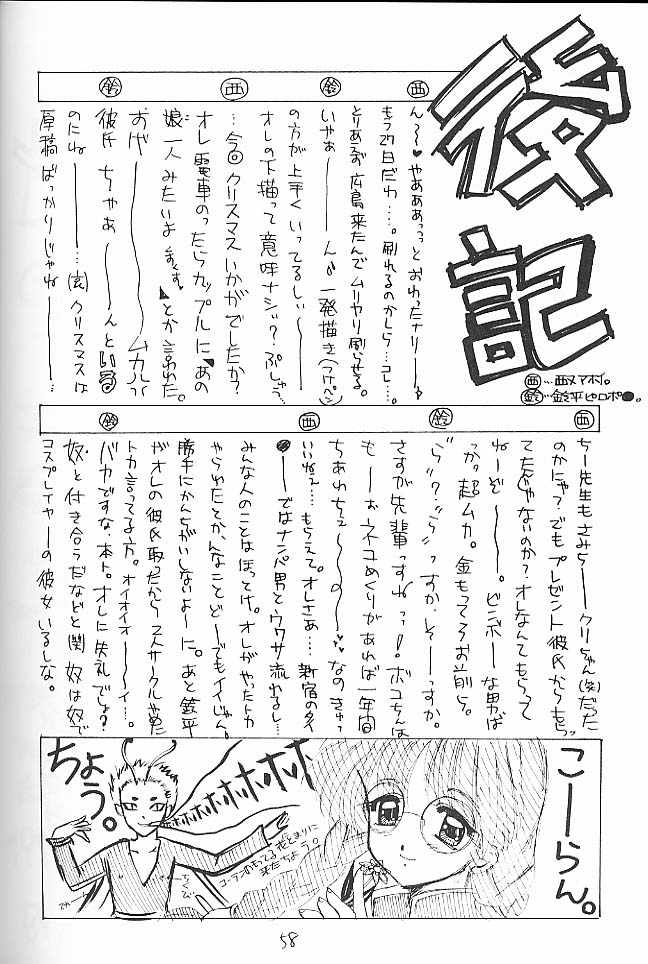 後記
西…西×アオイ。
鈴…鈴平ヒロポ●。
西
ん～～♥やああぁっっとおわったナリ――♪
もう27日だわ…。刷れるのかしら…コレ…。
とりあえず広島来たんでムリヤリ刷らせる。
鈴
いやぁ――ん♪一発描き(つけペン)
の方が上手くいってるしぃ――
オレの下描って意味ナシ？ぷしゅう…
西
…今回クリスマスいかがでしたか？
オレ電車のったらカップルに「あの
娘一人みたいよ」とか言われた。
鈴
おや――ムカルっ
彼氏ちゃぁ――んといる
のにね――…(玄)クリスマスは
原稿ばっかりじゃね――…
西
ちー先生もさみち――クリちゃん(笑)だった
のかにゃ？でもプレゼント彼氏からもらっ
てたんじゃないのか？オレなんてもらって
ねーぞ――。ビンボーな男ば
っか。超ムカ。金もってこおお前ら。
鈴
"ら"？"ら"っすか。そ――っすか。
さすが先輩っすねっっ！ボコちんは
も――おネコめくりがあれば一年間
ちあわちぇ～～の～♥なのきゅっ
西
いいねぇ…。もらえて。オレさぁ…。新宿のタイ
●――ではナンパ男とウワサ流れるし…
みんな人のことほっとけ。オレがやったトカ
やられたとか、んなことど――でもイイじゃん。
勝手にかんちがいしないよーに。あと鈴平
がオレの彼氏取ったから2人サークルやめた
トカ言ってる方。オイオイオ――イ…。
鈴
バカですな。本ト。オレに失礼でしょ？
奴と付き合うだなどと関 奴は奴で
コスプレイヤーの彼女いるしな。
こーらん。
ちょう。
ホホホホホホホホ
コーランのもってる花とまりに
来たちょう。
ちくび
58